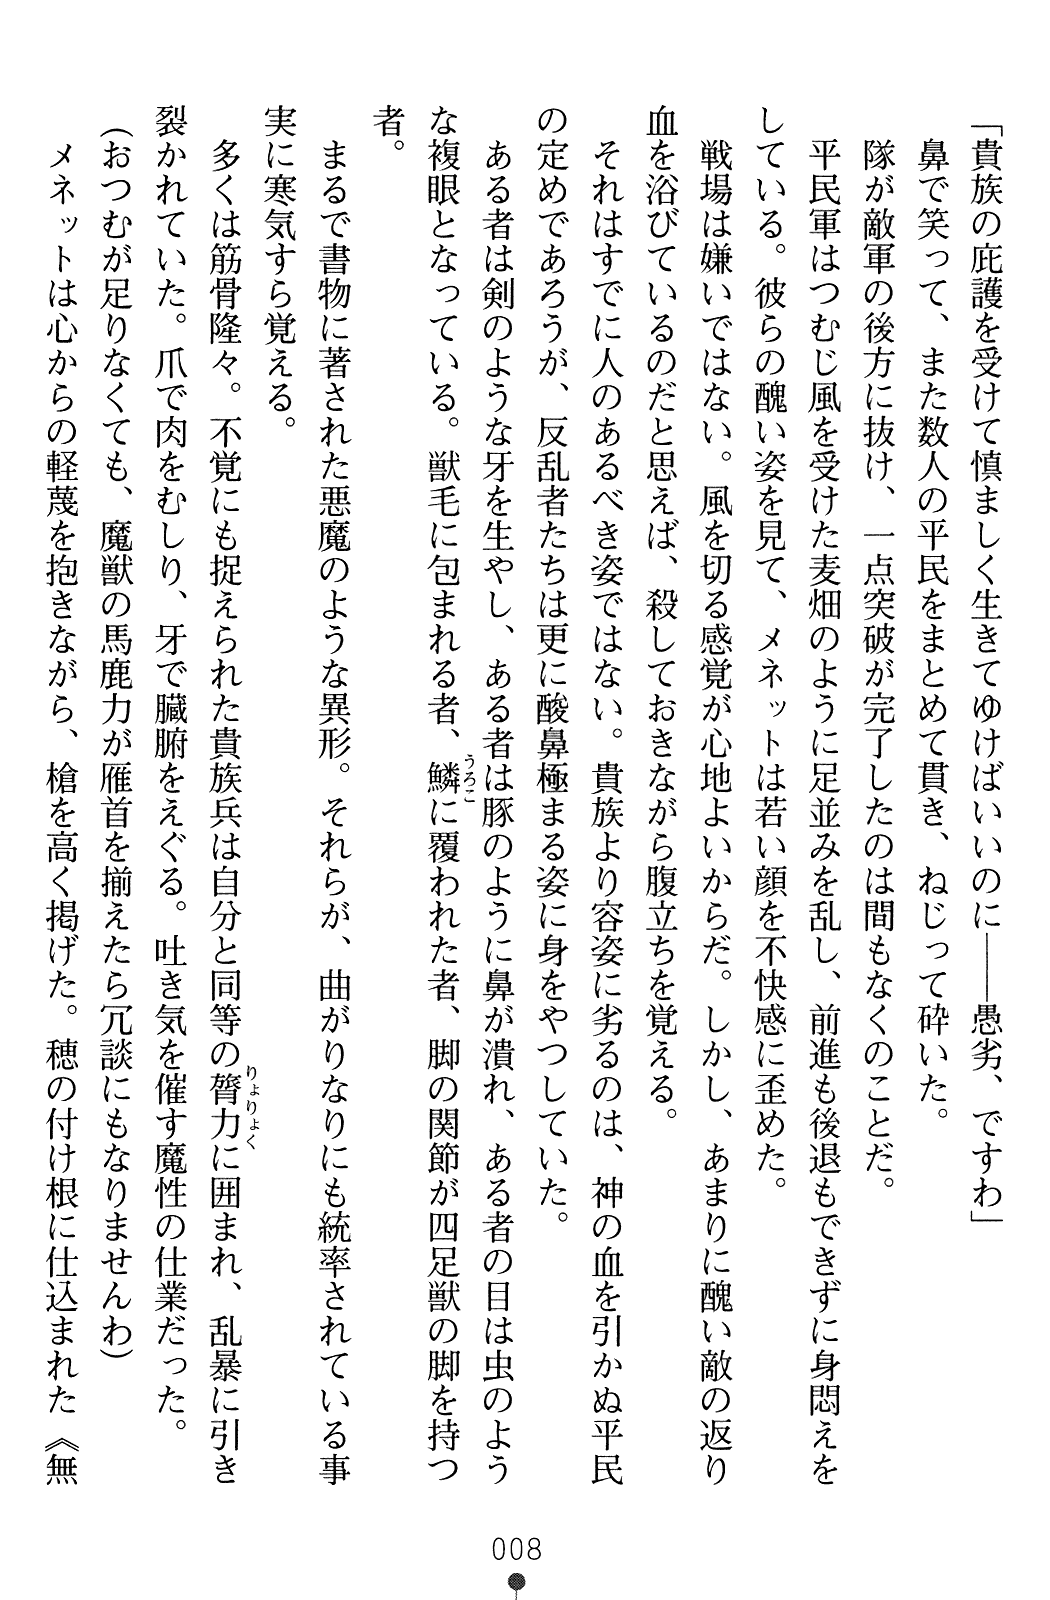 「貴族の庇護を受けて慎ましく生きてゆけばいいのに――愚劣、ですわ」
鼻で笑って、また数人の平民をまとめて貫き、ねじって砕いた。
隊が敵軍の後方に抜け、一点突破が完了したのは間もなくのことだ。
平民軍はつむじ風を受けた麦畑のように足並みを乱し、前進も後退もできずに身悶えを
している。彼らの醜い姿を見て、メネットは若い顔を不快感に歪めた。
戦場は嫌いではない。風を切る感覚が心地よいからだ。しかし、あまりに醜い敵の返り
血を浴びているのだと思えば、殺しておきながら腹立ちを覚える。
それはすでに人のあるべき姿ではない。貴族より容姿に劣るのは、神の血を引かぬ平民
の定めであろうが、反乱者たちは更に酸鼻極まる姿に身をやつしていた。
ある者は剣のような牙を生やし、ある者は豚のように鼻が潰れ、ある者の目は虫のよう
な複眼となっている。獣毛に包まれる者、鱗に覆われた者、脚の関節が四足獣の脚を持つ
うろこ
者。
まるで書物に著された悪魔のような異形。それらが、曲がりなりにも統率されている事
実に寒気すら覚える。
多くは筋骨隆々。不覚にも捉えられた貴族兵は自分と同等の膂力に囲まれ、乱暴に引き
りょりょく
裂かれていた。爪で肉をむしり、牙で臓腑をえぐる。吐き気を催す魔性の仕業だった。
(おつむが足りなくても、魔獣の馬鹿力が雁首を揃えたら冗談にもなりませんわ)
メネットは心からの軽蔑を抱きながら、槍を高く掲げた。穂の付け根に仕込まれた《無
008